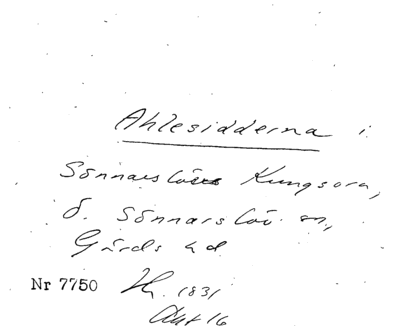 Ahlesidderna i
Sönnarslövs Kungsora,
Ö. Sönnarslöv sn,
Gärds hd
Nr 7750 1831
Akt 16